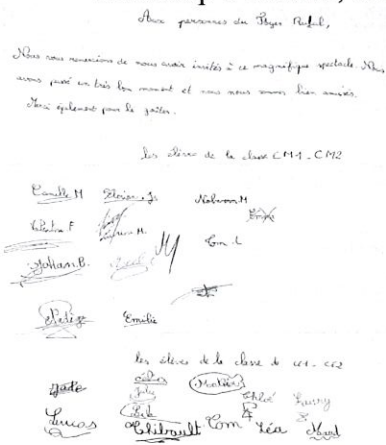 Aux personnes du Foyer Rural,
Nous vous remercions de nous avoir invités à ce magnifique spectacle. Nous
avons passé un très bon moment et nous nous sommes bien amusés.
Merci également pour le goûter.
les élèves de la classe CM1 - CM2
Camille M Florian Js Nolwenn M
Valentine F M. Emma
Johan B. Tom L
Nadège Emilie
les élèves de la classe de CE1 - CE2
Jade Mathieu Chloé Fanny
Lucas Thibault Tom Léa